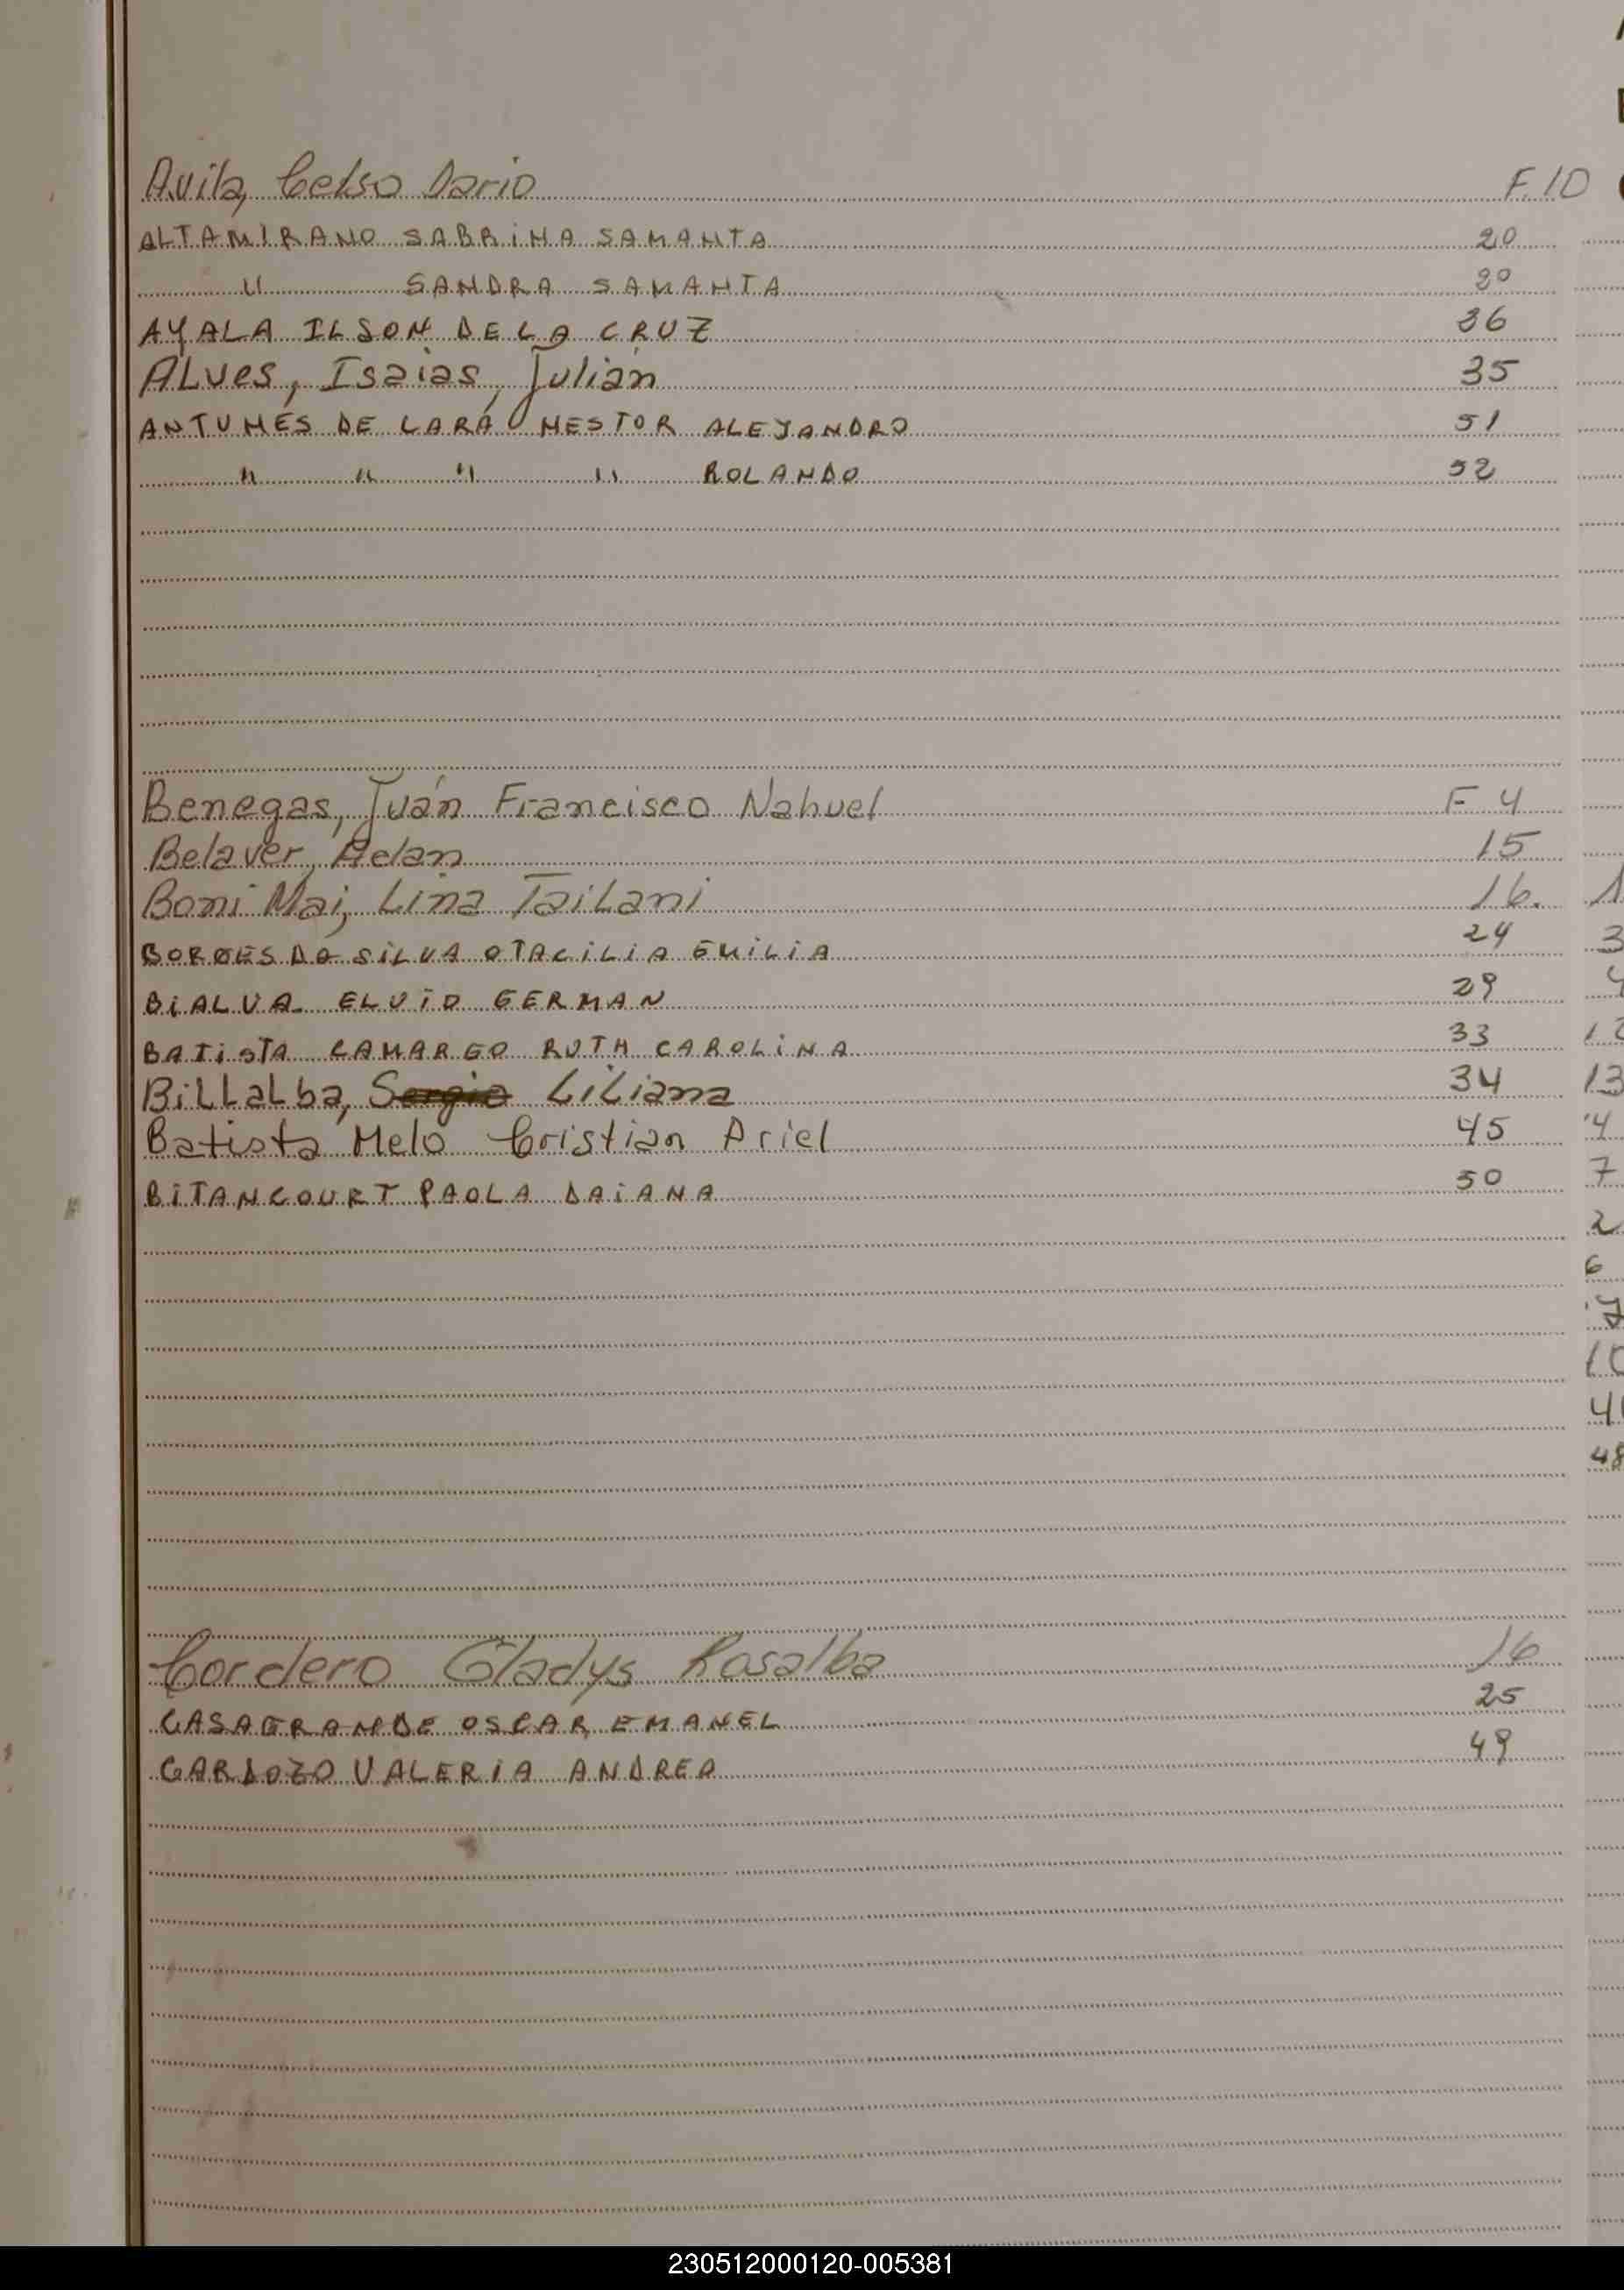 Avila, Celso Dario F. 10
ALTAMIRANO SABRINA SAMANTA 20
" SANDRA SAMANTA 20
AYALA ILSON DE LA CRUZ 36
ALves, Isaias, Julián 35
ANTUNES DE LARA NESTOR ALEJANDRO 51
" " " " ROLANDO 52
Benegas, Juán Francisco Nahuel F 4
Belaver, Aelan 15
Boni Mai, Lina TaiLani 16.
BORGES DA SILVA OTACILIA EMILIA 24
BIALVA ELVIO GERMAN 29
BATISTA CAMARGO RUTH CAROLINA 33
BiLLaLba, Sergio LiLiana 34
Batista Melo Cristian Ariel 45
BITANCOURT PAOLA DAIANA 50
Cordero Gladys Rosalba 16
CASAGRANDE OSCAR EMANEL 25
CARDOZO VALERIA ANDREA 49
230512000120-005381